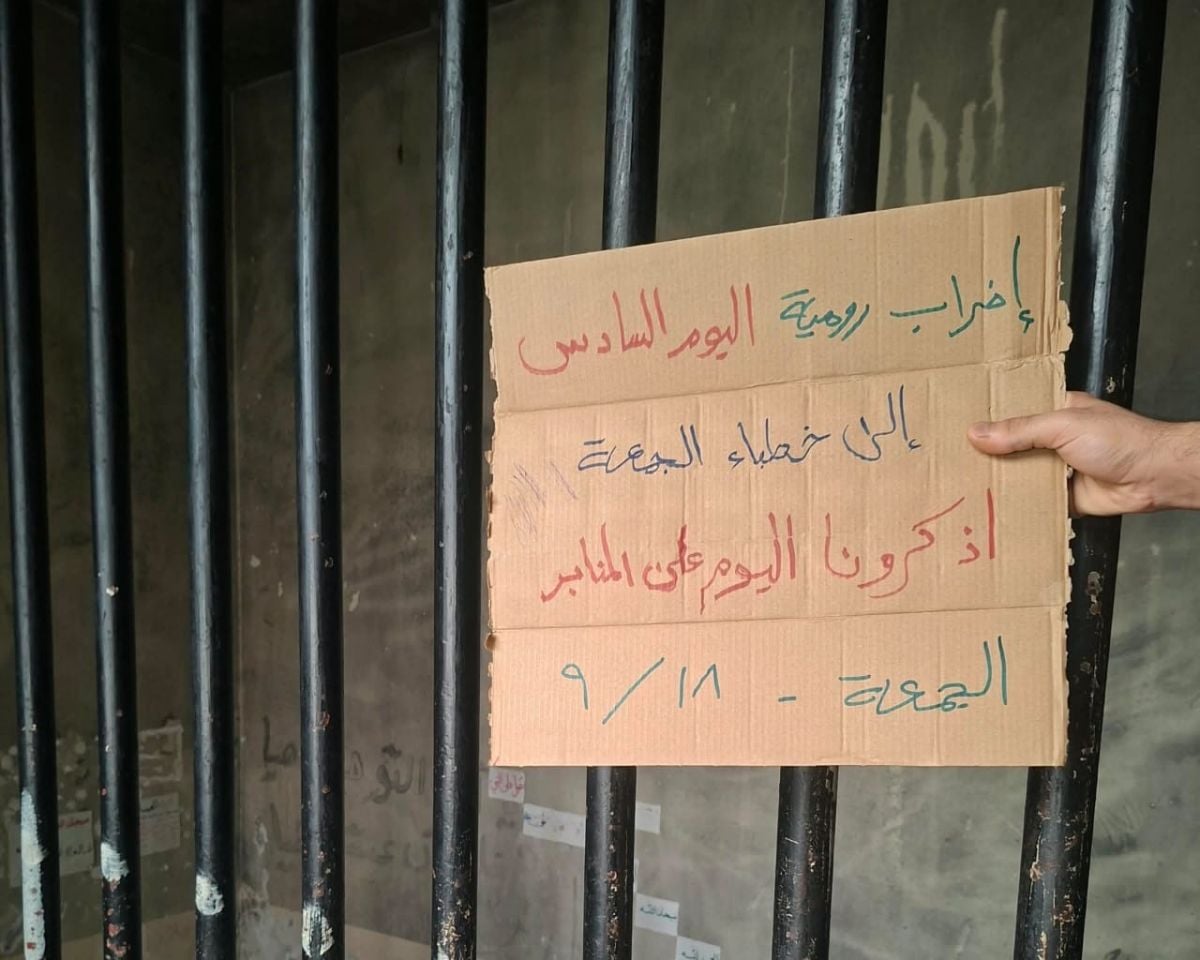 إضراب رومية اليوم السادس
إلى خطباء الجمعة
اذكرونا اليوم على المنابر
الجمعة - ٩/١٨